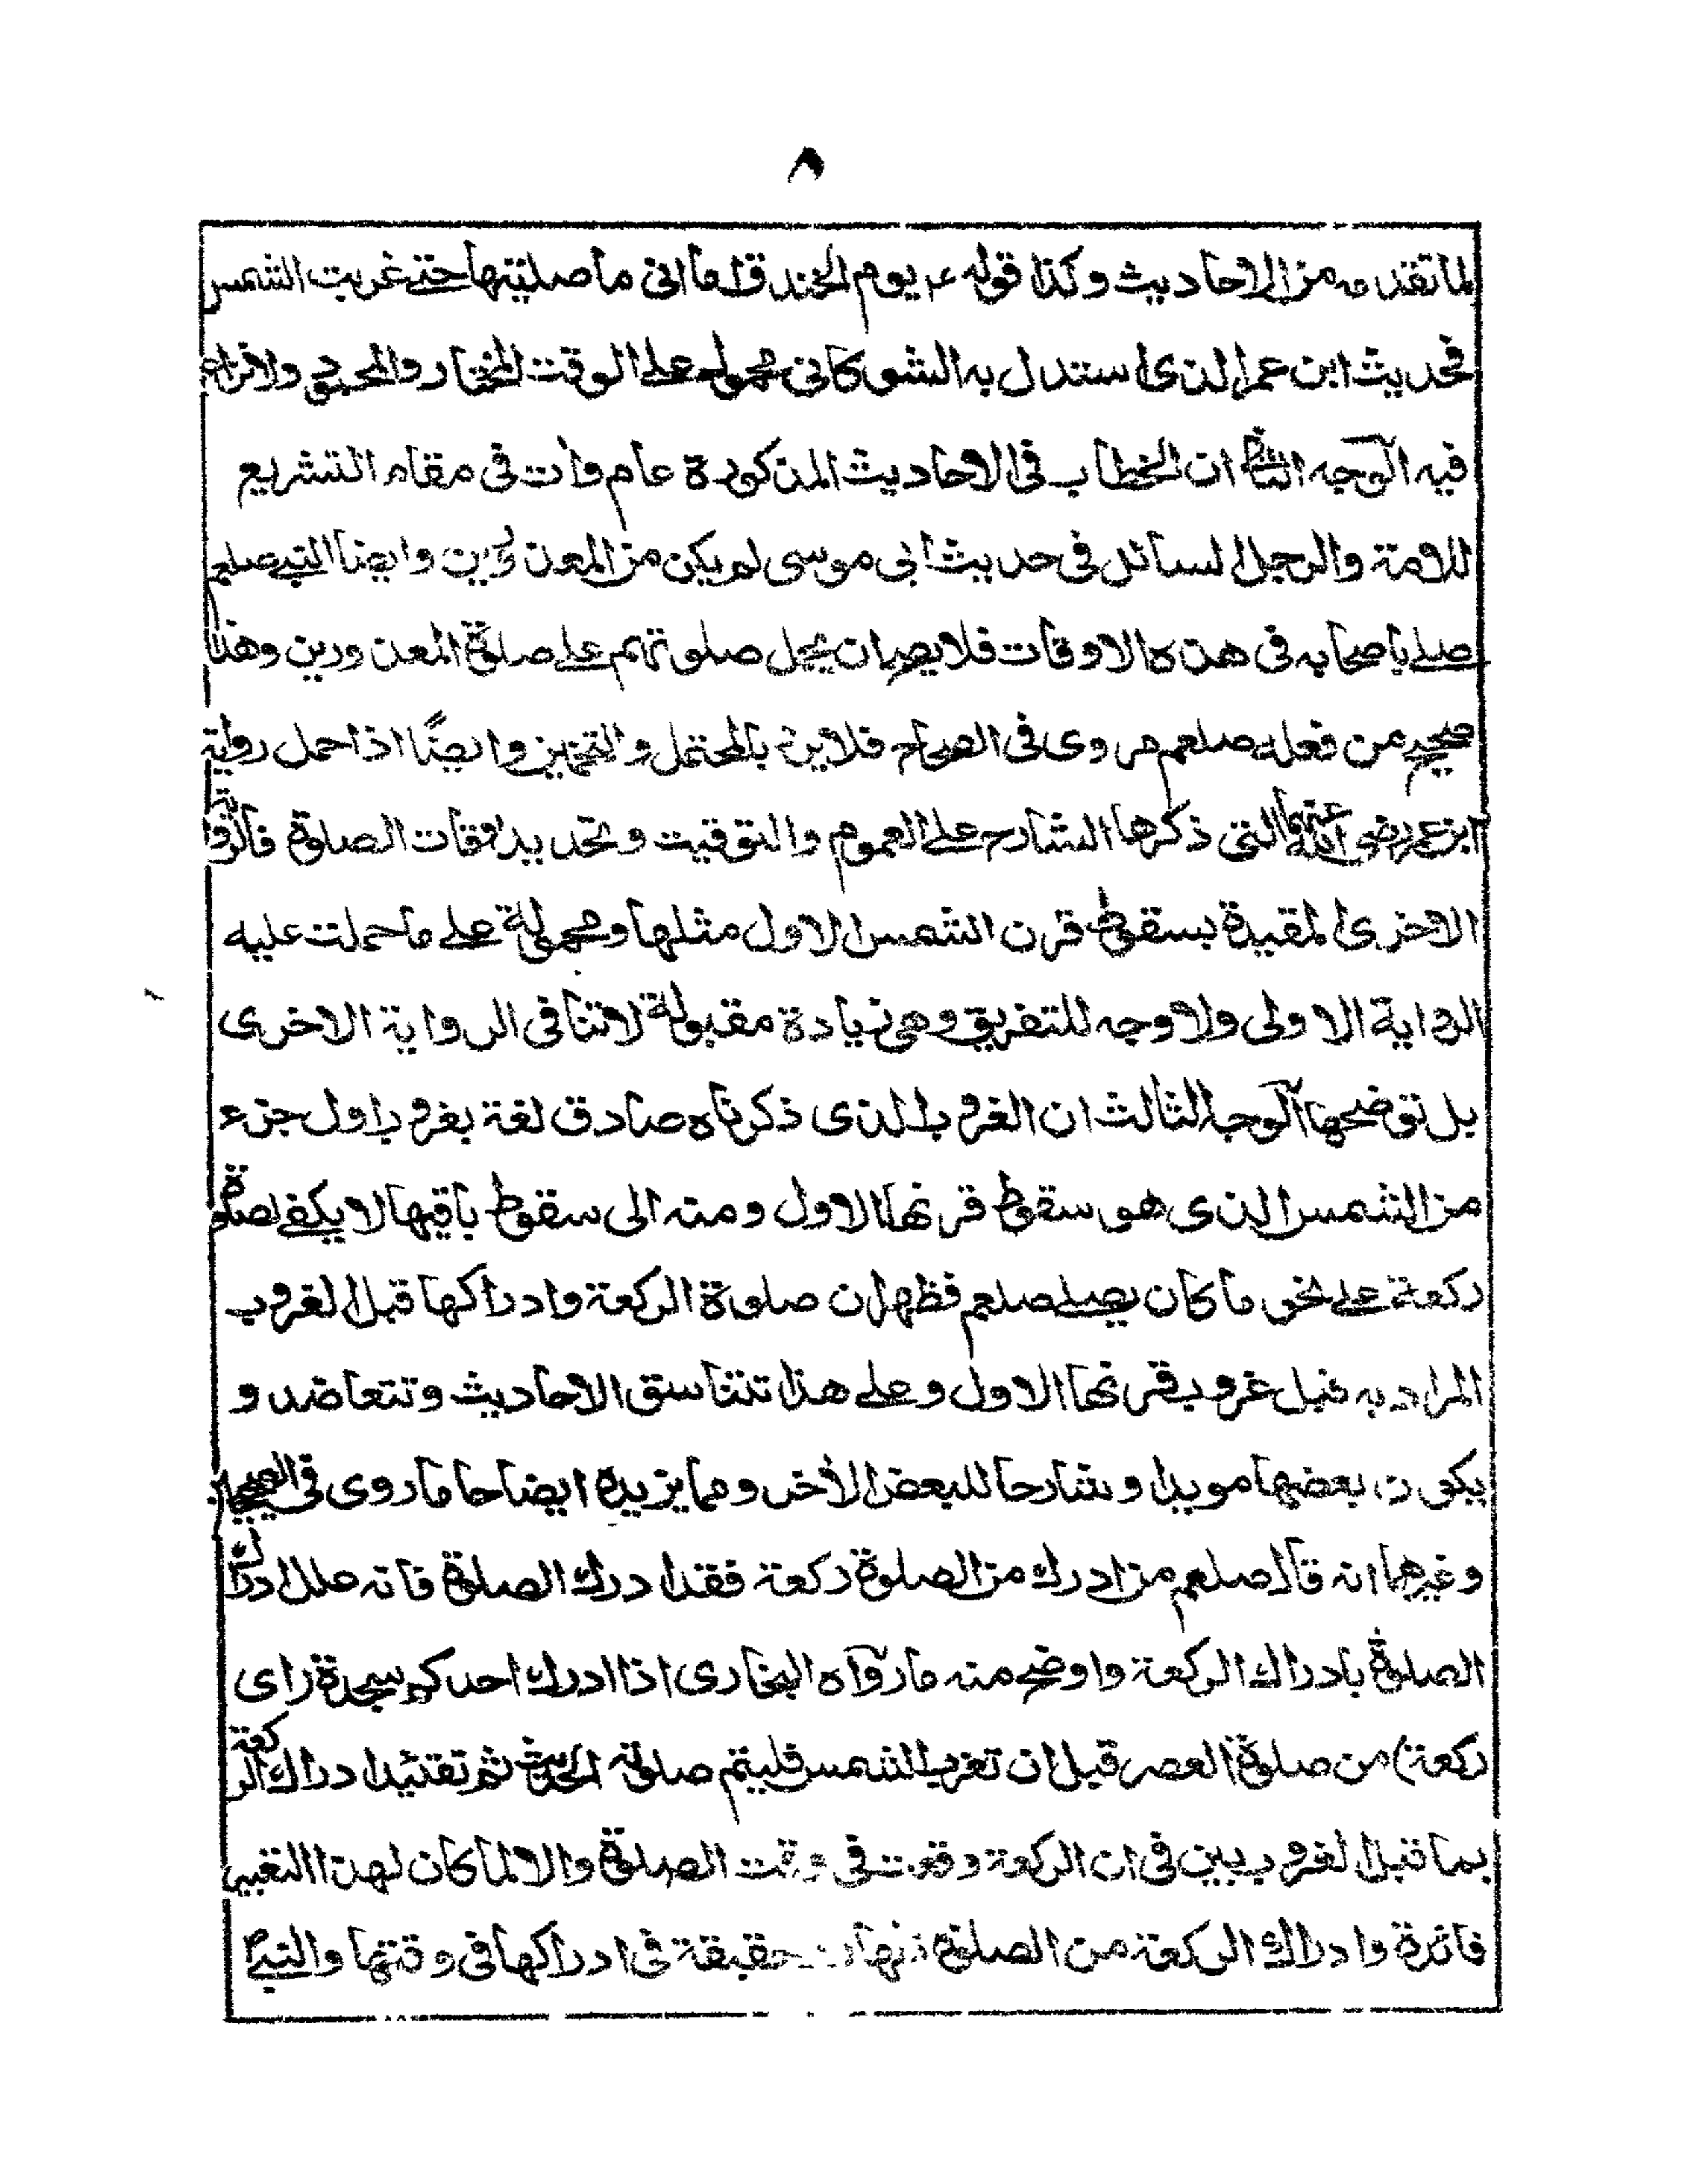 ٨
لما تقدم من الاحاديث وكذا قوله عم يوم الخندق اما انى ما صليتها حتے غربت الشمس
فحديث ابن عمر الذى استدل به الشوكانى محمول علے الوقت المختار والمحبوب ولا نزاع
فيه الوجه الثانى ان الخطاب فى الاحاديث المذكورة عام وات فى مقام التشريع
للامة والرجل السائل فى حديث ابى موسى لم يكن من المعذورين وايضا النبے صلعم
صلے باصحابه فى هذه الاوقات فلا يصح ان يحمل صلوتهم علے صلوة المعذورين وهذا
صحيح من فعله صلعم مروى فى الصحاح فلا يرد بالمحتمل والتخمين وايضًا اذا حمل رواية
ابن عمر رضى الله عنهما التى ذكرها الشارح علے العموم والتوقيت وتحديد اوقات الصلوة فالرواية
الاخرى المقيدة بسقوط قرن الشمس الاول مثلها ومحمولة علے ما حملت عليه
الرواية الاولى ولا وجه للتفريق وهى زيادة مقبولة لا تنافى الرواية الاخرى
بل توضحها الوجه الثالث ان الغروب الذى ذكرناه صادق لغة بغروب اول جزء
من الشمس الذى هو سقوط قرنها الاول ومنه الى سقوط باقيها لا يكفے لصلوة
ركعة علے نحو ما كان يصلے صلعم فظهر ان صلوة الركعة وادراكها قبل الغروب
المراد به قبل غروب قرنها الاول وعلے هذا تتناسق الاحاديث وتتعاضد و
يكون بعضها مويدا وشارحا للبعض الأخر ومما يزيده ايضاحا ما روى فى الصحيحين
وغيرهما انه قال صلعم من ادرك من الصلوة ركعة فقد ادرك الصلوة فانه علل ادراك
الصلوة بادراك الركعة واوضح منه ما رواه البخارى اذا ادرك احدكم سجدة (اى
ركعة) من صلوة العصر قبل ان تغرب الشمس فليتم صلوته الحديث ثم تقئيد ادراك الركعة
بما قبل الغروب يبين فى ان الركعة وقعت فى وقت الصلوة والا لما كان لهذا التغيير
فائدة وادراك الركعة من الصلوة حقيقة فى ادراكها فى وقتها والنبے